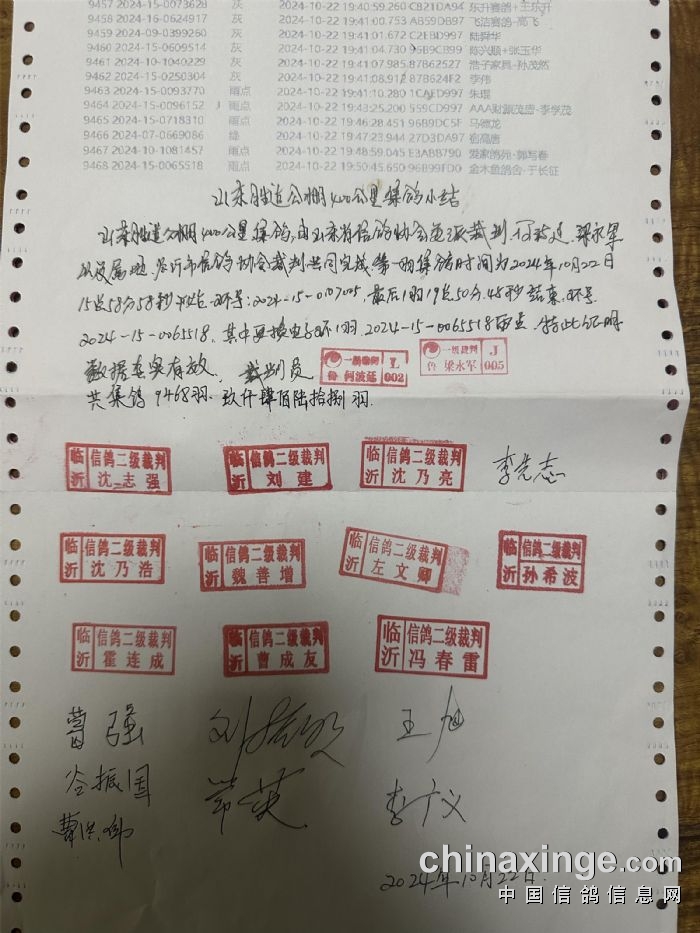 9457 2024-15-0073628 灰 2024-10-22 19:40:59.260 C821DA94 东升赛鸽+王东升
9458 2024-15-0624917 灰 2024-10-22 19:41:00.753 AB59DB97 飞洁赛鸽-高飞
9459 2024-09-0399260 灰 2024-10-22 19:41:01.672 C2EBD997 陆舜华
9460 2024-15-0609514 灰 2024-10-22 19:41:04.730 96B9CB99 陈兴顺+张玉华
9461 2024-10-1040229 灰 2024-10-22 19:41:07.985 87B62527 浩子家具-孙茂然
9462 2024-15-0250304 灰 2024-10-22 19:41:08.912 87B624F2 李伟
9463 2024-15-0093770 雨点 2024-10-22 19:41:10.280 1CAFD997 朱琨
9464 2024-15-0096152 J 雨点 2024-10-22 19:43:25.200 559CD997 AAA财源茂密-李学茂
9465 2024-15-0718310 雨点 2024-10-22 19:46:28.451 96B9DC5F 马德龙
9466 2024-07-0669086 绛 2024-10-22 19:47:23.944 27D3DA97 宿高唐
9467 2024-10-1081457 雨点 2024-10-22 19:48:59.045 E3ABB790 爱家鸽苑-郭写春
9468 2024-15-0065518 雨点 2024-10-22 19:50:45.650 96B99FD0 金木鱼鸽舍-于长征
山东胜道公棚400公里集鸽小结
山东胜道公棚400公里集鸽,由山东省信鸽协会委派裁判,何波延、梁永军
以及属地,临沂市信鸽协会裁判共同完成,第一羽集鸽时间为2024年10月22日
15点58分58秒 环号:2024-15-0107005,最后1羽19点50分45秒结束,环号
2024-15-0065518,其中更换电子环1羽.2024-15-0065518雨点,特此证明
数据真实有效. 裁判员
一级裁判 L
鲁 何波延 002
一级裁判 J
鲁 梁永军 005
共集鸽9468羽.玖仟肆佰陆拾捌羽.
临沂 信鸽二级裁判 沈志强
临沂 信鸽二级裁判 刘建
临沂 信鸽二级裁判 沈乃亮
李先志
临沂 信鸽二级裁判 沈乃浩
临沂 信鸽二级裁判 魏善增
临沂 信鸽二级裁判 左文卿
临沂 信鸽二级裁判 孙希波
临沂 信鸽二级裁判 霍连成
临沂 信鸽二级裁判 曹成友
临沂 信鸽二级裁判 冯春雷
葛强 王旭
李广义
2024年10月22日
chinaxinge.com
中国信鸽信息网